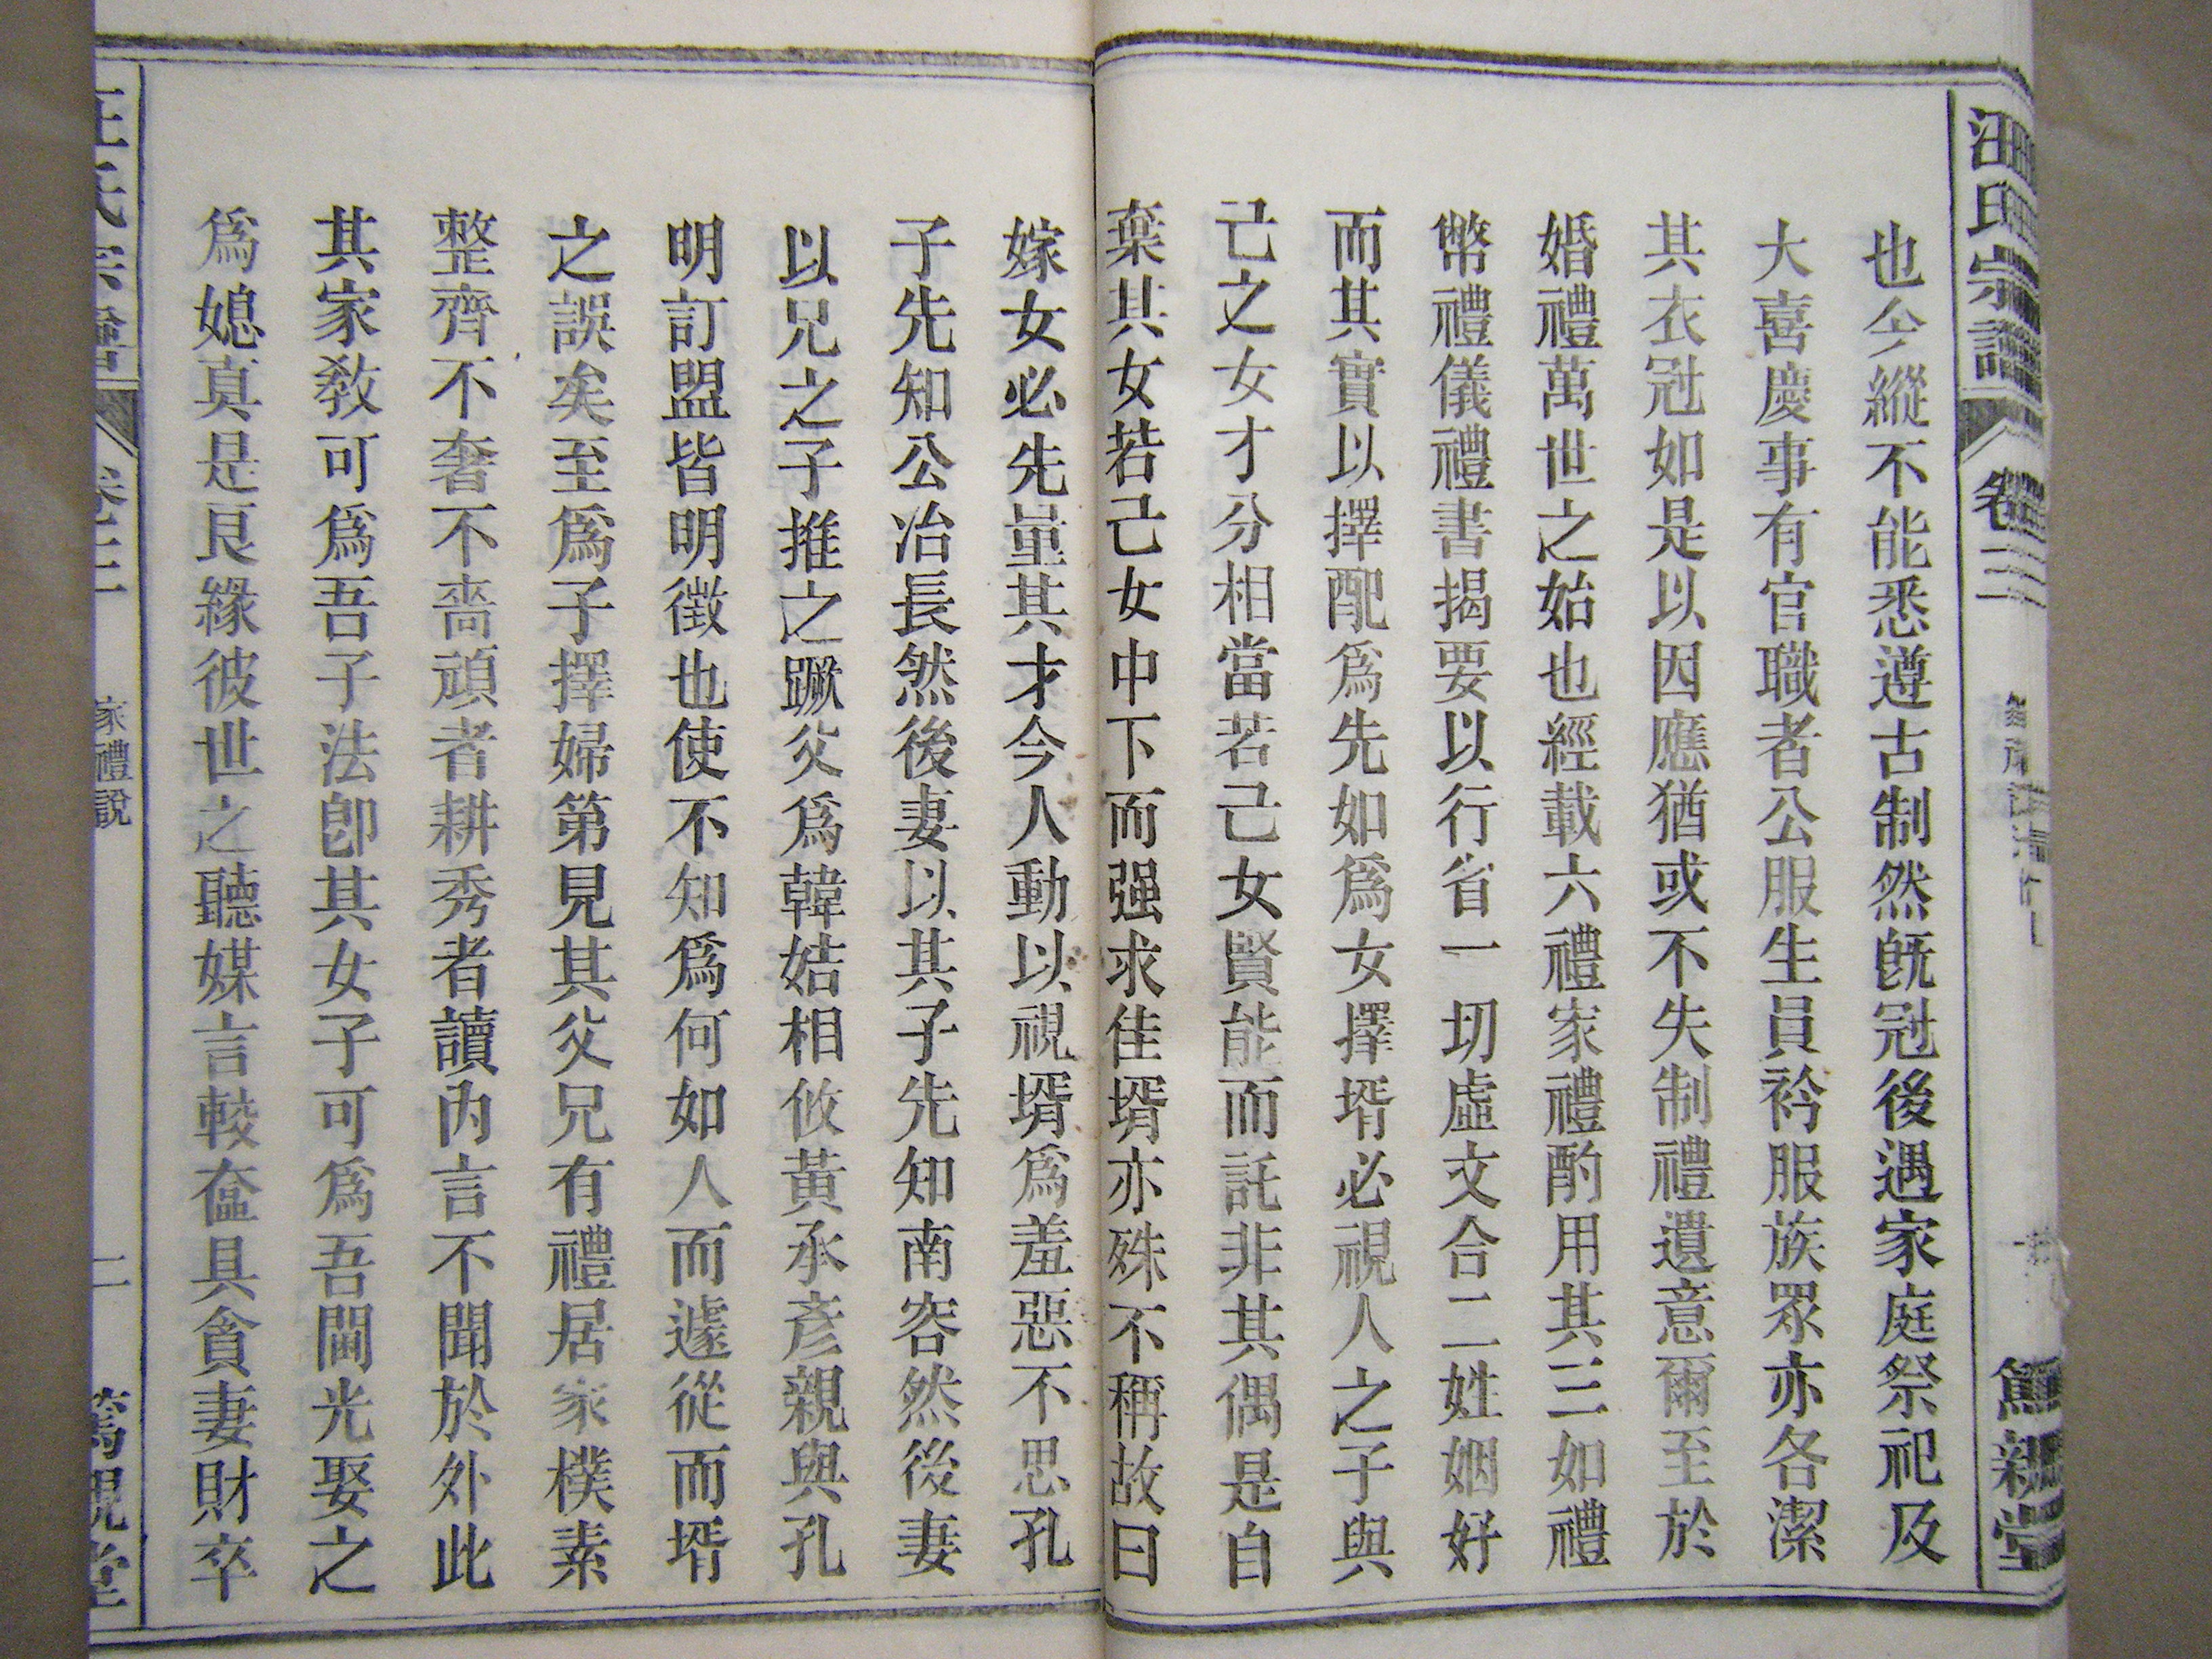 汪氏宗譜 卷三 篤親堂
也今縱不能悉遵古制然旣冠後遇家庭祭祀及
大喜慶事有官職者公服生員衿服族眾亦各潔
其衣冠如是以因應猶或不失制禮遺意爾至於
婚禮萬世之始也經載六禮家禮酌用其三如禮
幣禮儀禮書揭要以行省一切虛文合二姓姻好
而其實以擇配爲先如爲女擇壻必視人之子與
己之女才分相當若己女賢能而託非其偶是自
棄其女若己女中下而强求佳壻亦殊不稱故曰
嫁女必先量其才今人動以視壻爲羞惡不思孔
子先知公冶長然後妻以其子先知南容然後妻
以兄之子推之蹶父爲韓姞相攸黃承彥親與孔
明訂盟皆明徵也使不知爲何如人而遽從而壻
之誤矣至爲子擇婦第見其父兄有禮居家樸素
整齊不奢不嗇頑者耕秀者讀內言不聞於外此
其家敎可爲吾子法卽其女子可爲吾閫光娶之
爲媳真是良緣彼世之聽媒言較奩具貪妻財卒
汪氏宗譜 卷三 家禮說 二 篤親堂